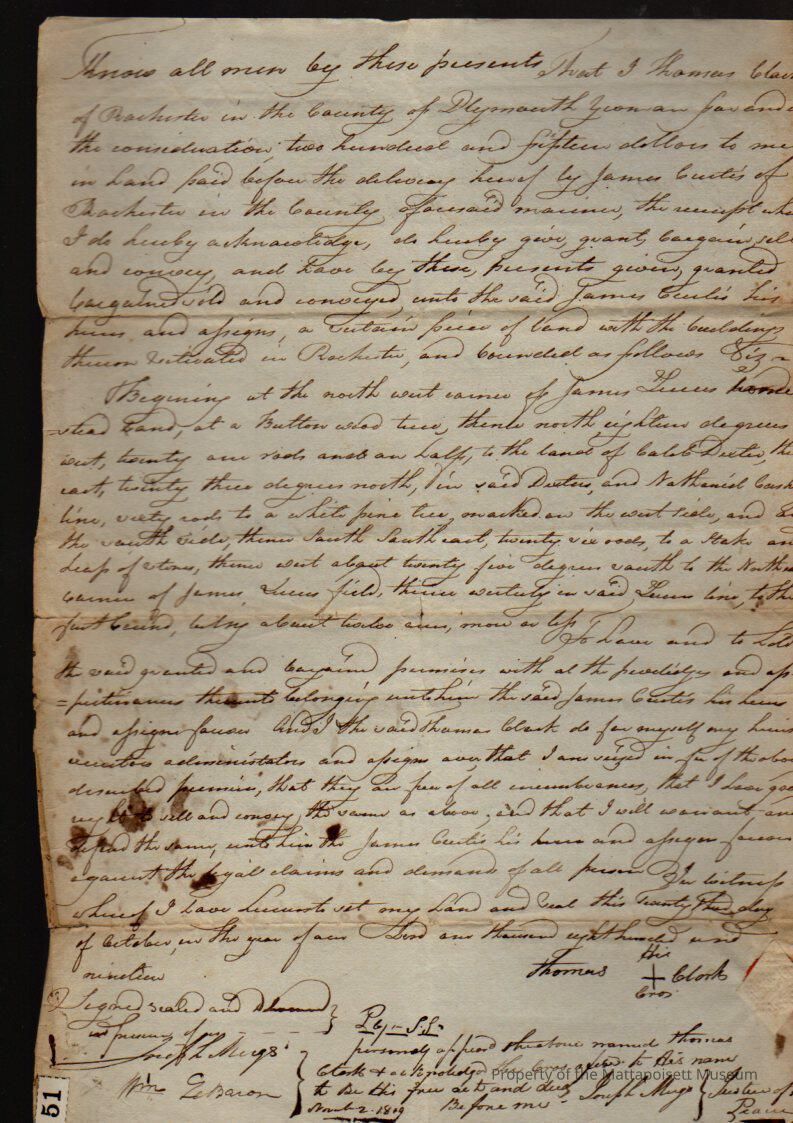 Know all men by these presents That I Thomas Clar
of Rochester in the County of Plymouth Yeoman for and
the consideration two hundred and fifteen dollars to me
in hand paid before the delivery hereof by James Curtis of
Rochester in the County aforesaid mariner, the receipt whe
I do hereby acknowledge, do hereby give, grant, bargain, sell
and convey, and have by these presents given, granted
bargained sold and conveyed, unto the said James Curtis his
heirs and assigns, a certain piece of land with the buildings
thereon situated in Rochester, and bounded as follows Viz
Begining at the north west corner of James home
=stead Land, at a Button wood tree, thence north eighteen degrees
west, twenty one rods and an half, to the land of Caleb Dexter, the
east, twenty three degrees north, in said Dexters, and Nathaniel
line, sixty rods to a white pine tree, marked on the west side, and
the south side, thence South South east, twenty six rods, to a Stake an
heap of stones, thence west about twenty five degrees south to the North
corner of James field, thence westerly in said line, to the
first bound, being about twelve acres, more or less To have and to hold
the said granted and bargaind premises with al the priviledges and ap
=purtenances belonging unto him the said James Curtis his heirs
and assigns forever And I the said Thomas Clark do for myself my heirs
executors administrators and assigns aver that I am seized in fee of the abov
described premises, that they are free of all incumbrances, that I have goo
right to sell and convey the same as above, and that I will warrant an
defend the same, unto him the James Curtis his heirs and assigns forever
against the legal claims and demands of all persons In witness
whereof I have hereunto set my hand and seal this twenty third day
of October, in the year of our Lord one thousand eight hundred and
nineteen
Thomas His + Clark
Cros
Signed sealed and Deliverd
in presence of us
Joseph Meigs
Wm LeBaron
Ply - S.S.
personaly appeard the above named Thomas
Clark & acknowledgd the to His name
to Be this Free act and deed
Novmbr 2. 1819 Before me - Joseph Meigs Justice of
Peace
Property of the Mattapoisett Museum
51